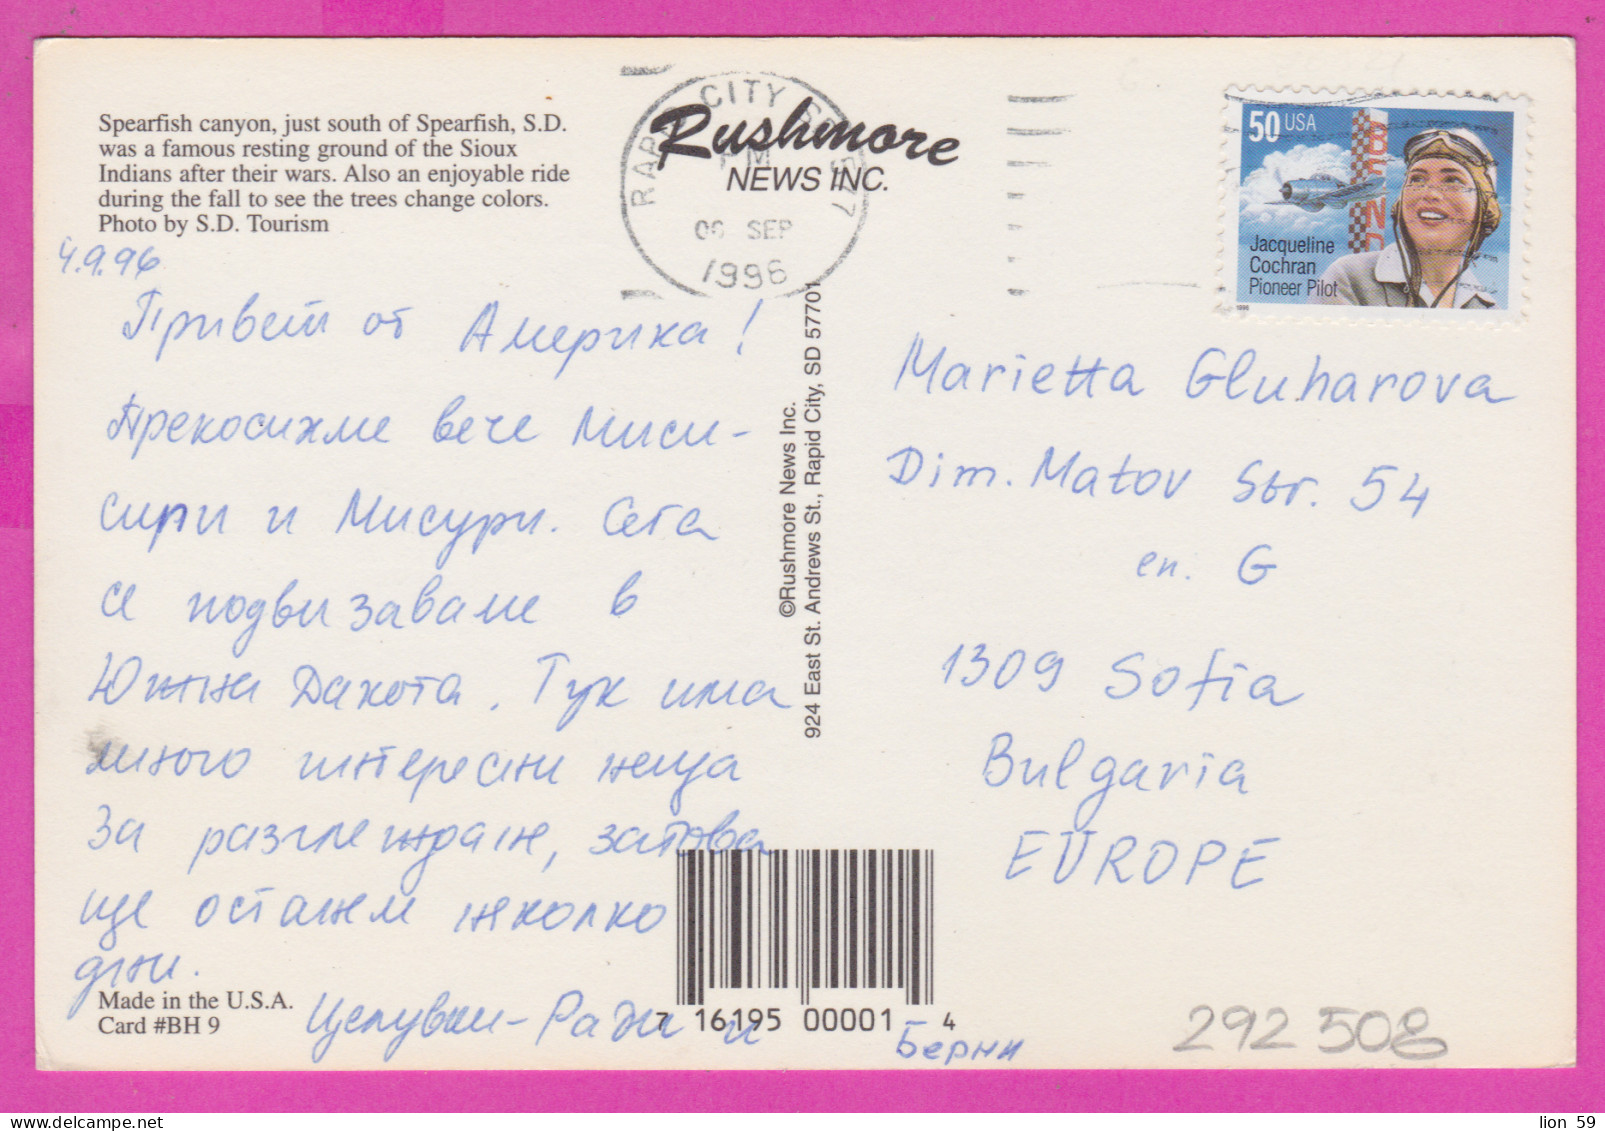 Spearfish canyon, just south of Spearfish, S.D.
was a famous resting ground of the Sioux
Indians after their wars. Also an enjoyable ride
during the fall to see the trees change colors.
Photo by S.D. Tourism
Rushmore
NEWS INC.
RAPID CITY SD 577
PM
06 SEP
1996
50 USA
BEND
Jacqueline
Cochran
Pioneer Pilot
1996
4.9.96
Привет от Америка!
Прекосихме вече Миси-
сипи и Мисури. Сега
се подвизаваме в
Южна Дакота. Тук има
много интересни неща
за разглеждане, затова
ще останем няколко
дни.
Целувки - Ради и
Берни
©Rushmore News Inc.
924 East St. Andrews St., Rapid City, SD 57701
Marietta Gluharova
Dim. Matov Str. 54
en. G
1309 Sofia
Bulgaria
EUROPE
Made in the U.S.A.
Card #BH 9
7 16195 00001 4
292 508
lion 59